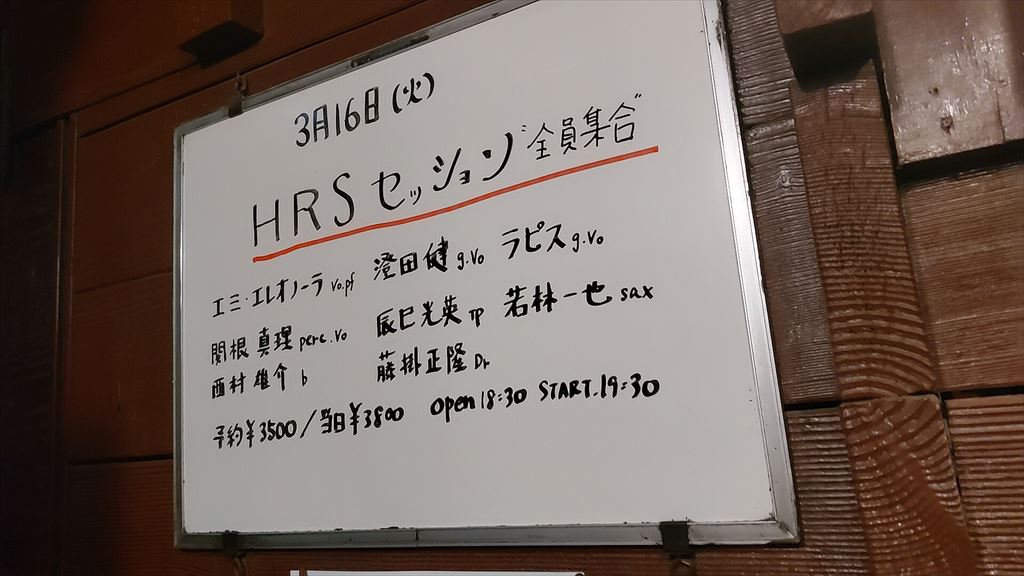 3月16日(火)
HRSセッション“全員集合”
エミ・エレオノーラ vo.pf 澄田健 g.vo ラピス g.vo
関根真理 perc.vo 辰巳光英 TP 若林一也 sax
西村雄介 b 藤掛正隆 Dr
予約¥3500/当日¥3800 open18:30 START.19:30